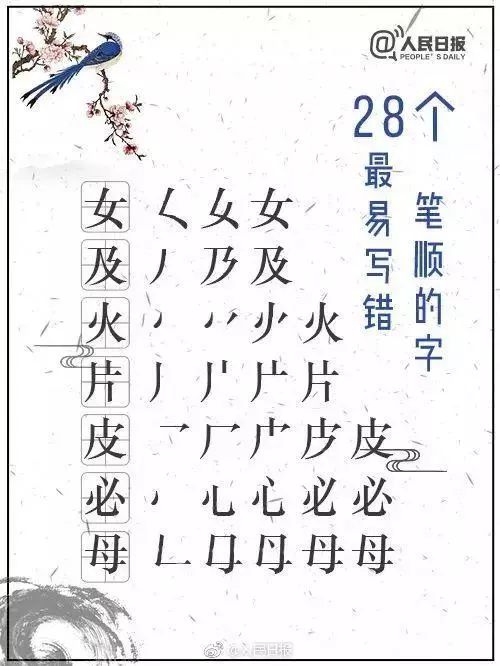 @人民日报
PEOPLE'S DAILY
28个
最易写错
笔顺的字
女 𡿨 女 女
及 丿 乃 及
火 丶 丷 火
片 丿 片
皮 皮
必 丶 心 心 必 必
母 𠃊 母 母
@人民日报